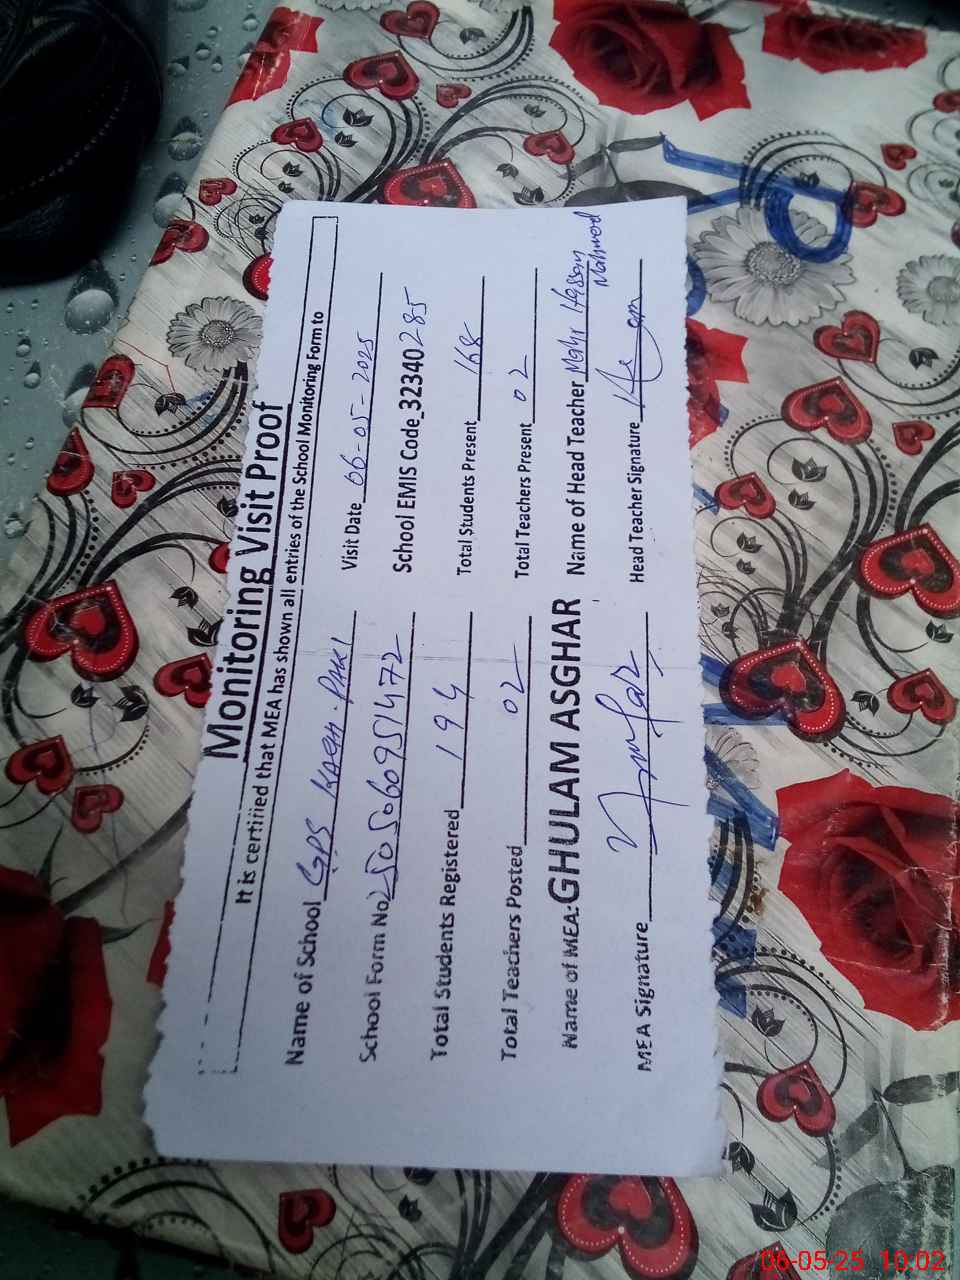 Monitoring Visit Proof
It is certified that MEA has shown all entries of the School Monitoring Form to
Name of School GPS KACHI PAKKI Visit Date 06-05-2025
School Form No 2505060951472 School EMIS Code_32340285
Total Students Registered 194 Total Students Present 168
Total Teachers Posted 02 Total Teachers Present 02
Name of MEA: GHULAM ASGHAR Name of Head Teacher Mahr Hassan
Mahmood
MEA Signature Head Teacher Signature
06-05-25 10:02